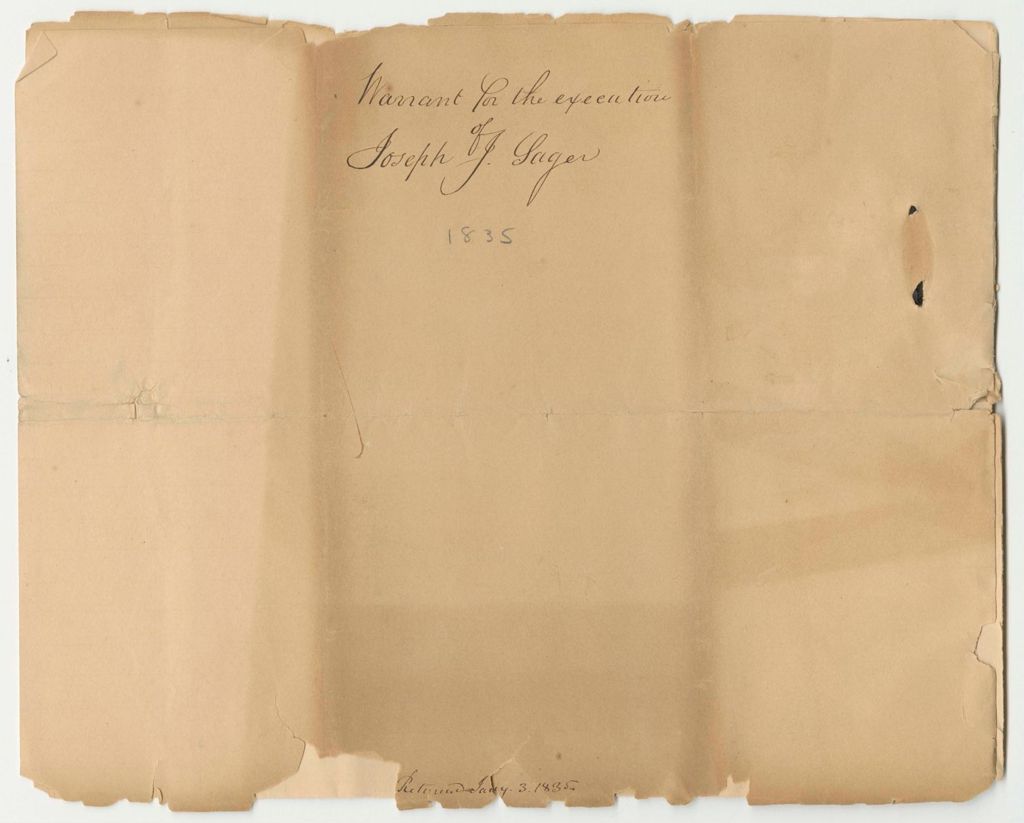 Warrant for the execution
of
Joseph J. Sager
1835
Returned Jany. 3. 1835